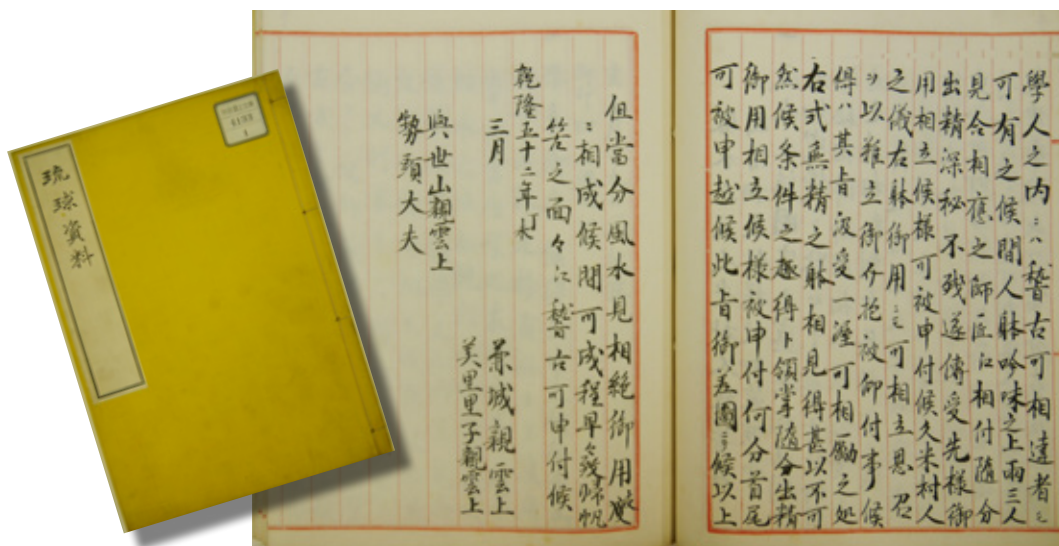 琉球資料
學人之内ニハ稽古可相達者ニ
可有之候間人躰吟味之上両三人
見合相應之師匠江相付隨分
出精深秘不残遂傳受先様御
用相立候様可被申付候久米村人
之儀右躰御用ニも可相立思召
ヲ以難立御介抱被仰付事候
得ハ其旨汲受一涯可相勵之処
右式無精之躰相見得甚以不可
然候条件之趣得ト領掌隨分出精
御用相立候様被申付何分首尾
可被申越候此旨御差圖ニ而候以上
但當分風水見相絶御用支
ニ相成候間可成程早々致帰帆
筈之面々江稽古可申付候
乾隆五十二年丁未
三月
赤城親雲上
美里里子親雲上
與世山親雲上
勢頭大夫